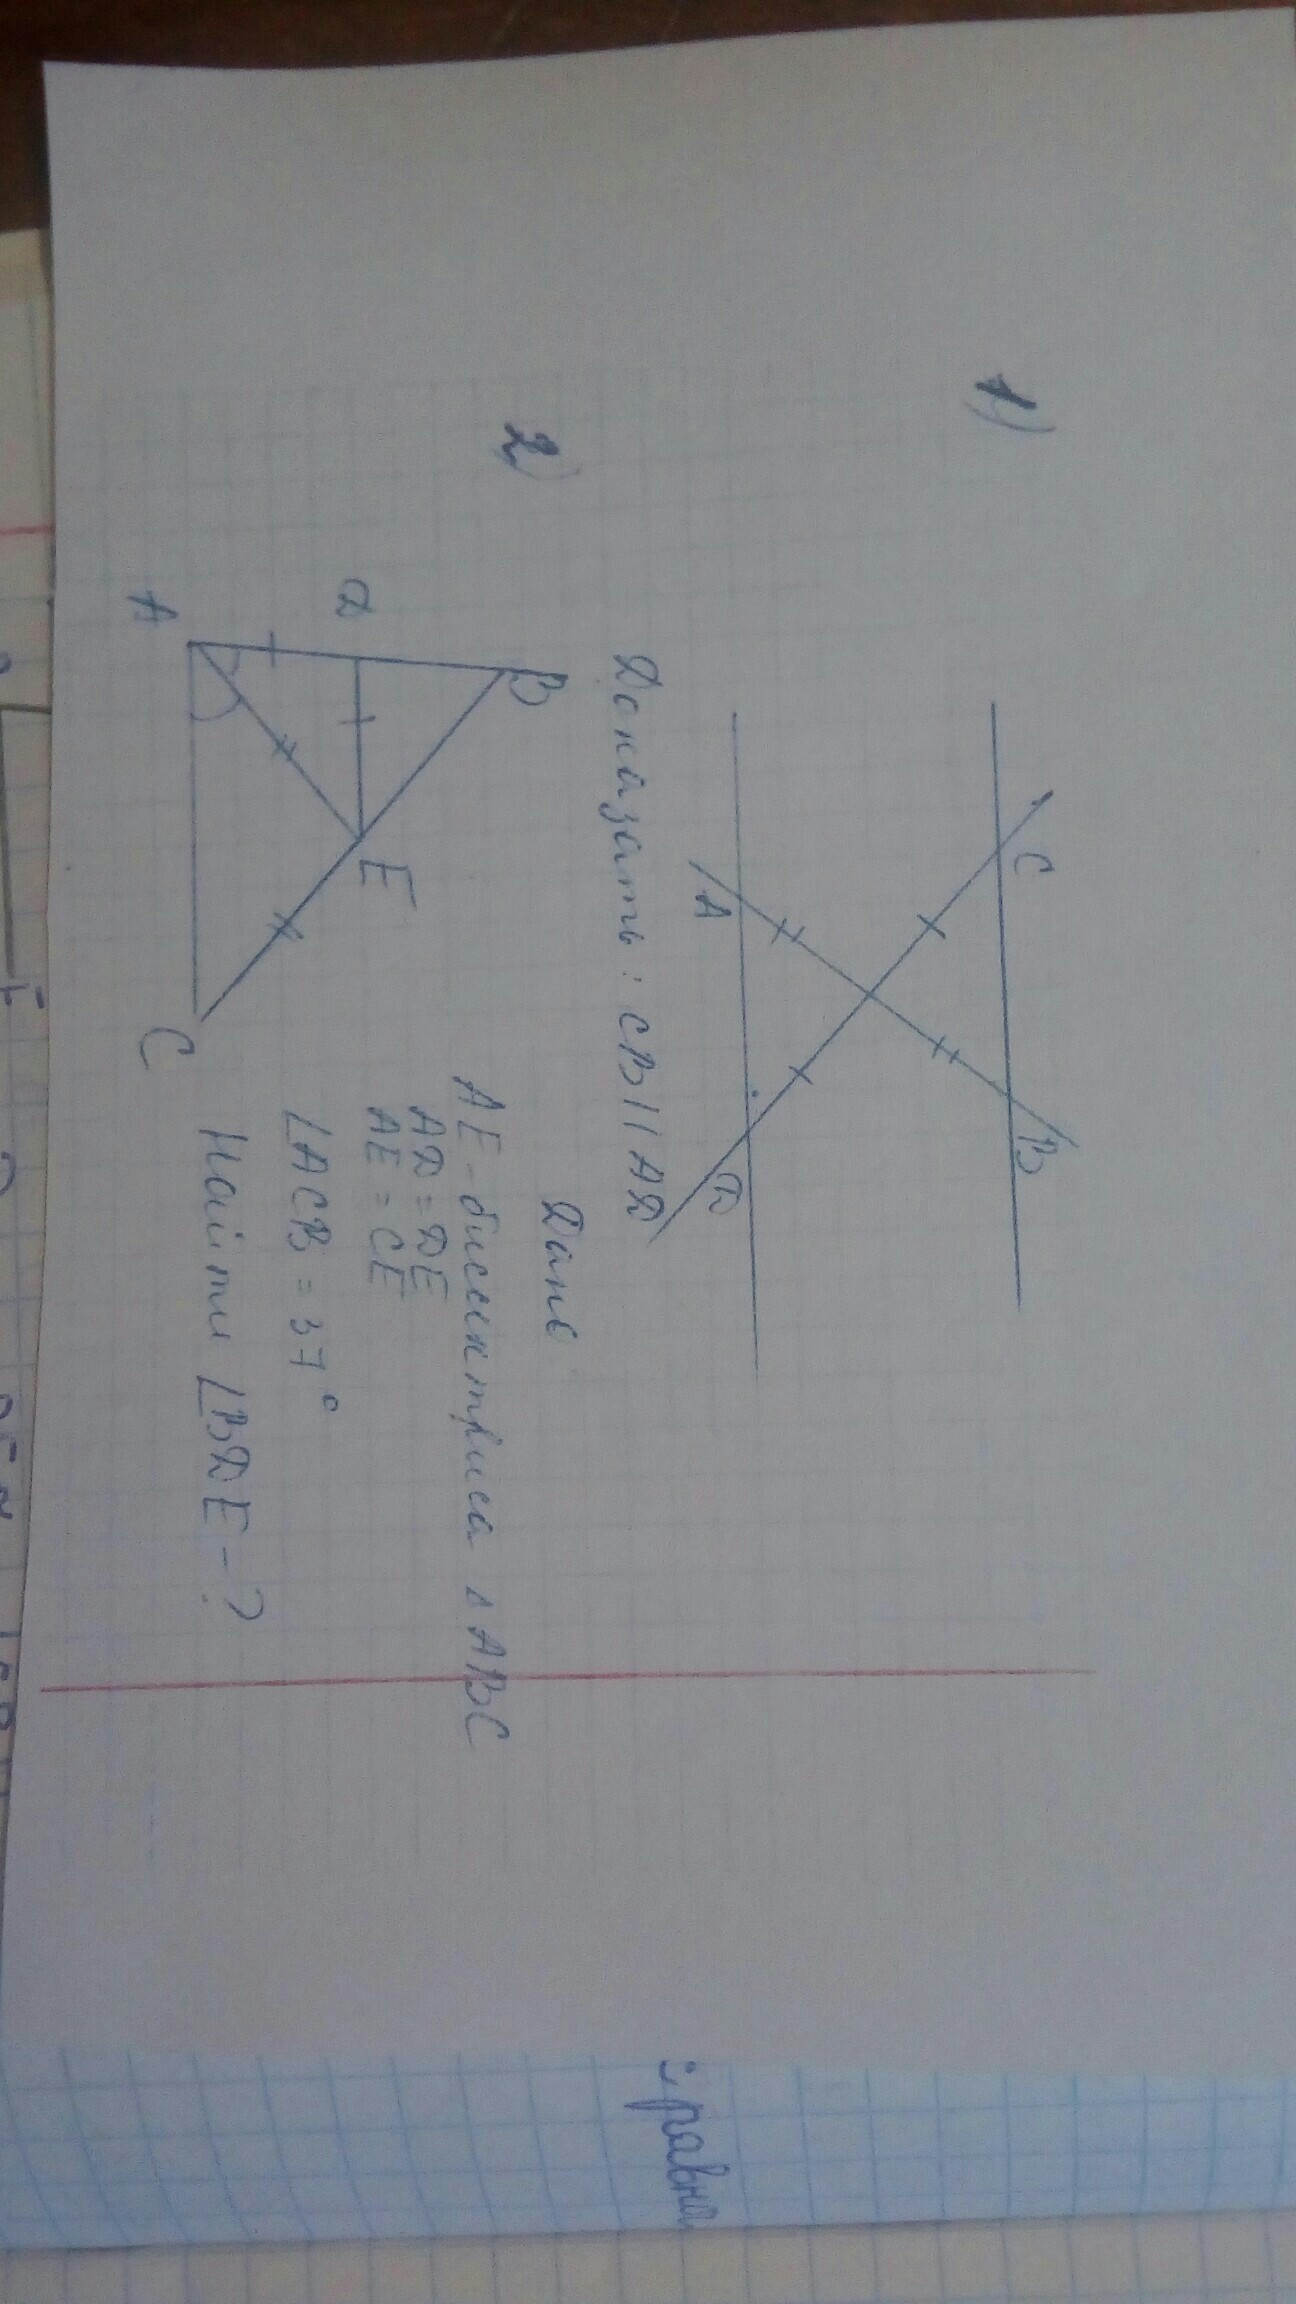 1)
C
B
A
D
Доказать: CB || AD
2)
B
D
E
A
C
Дано:
AE - биссектриса △ ABC
AD = DE
AE = CE
∠ACB = 37°
Найти ∠BDE - ?